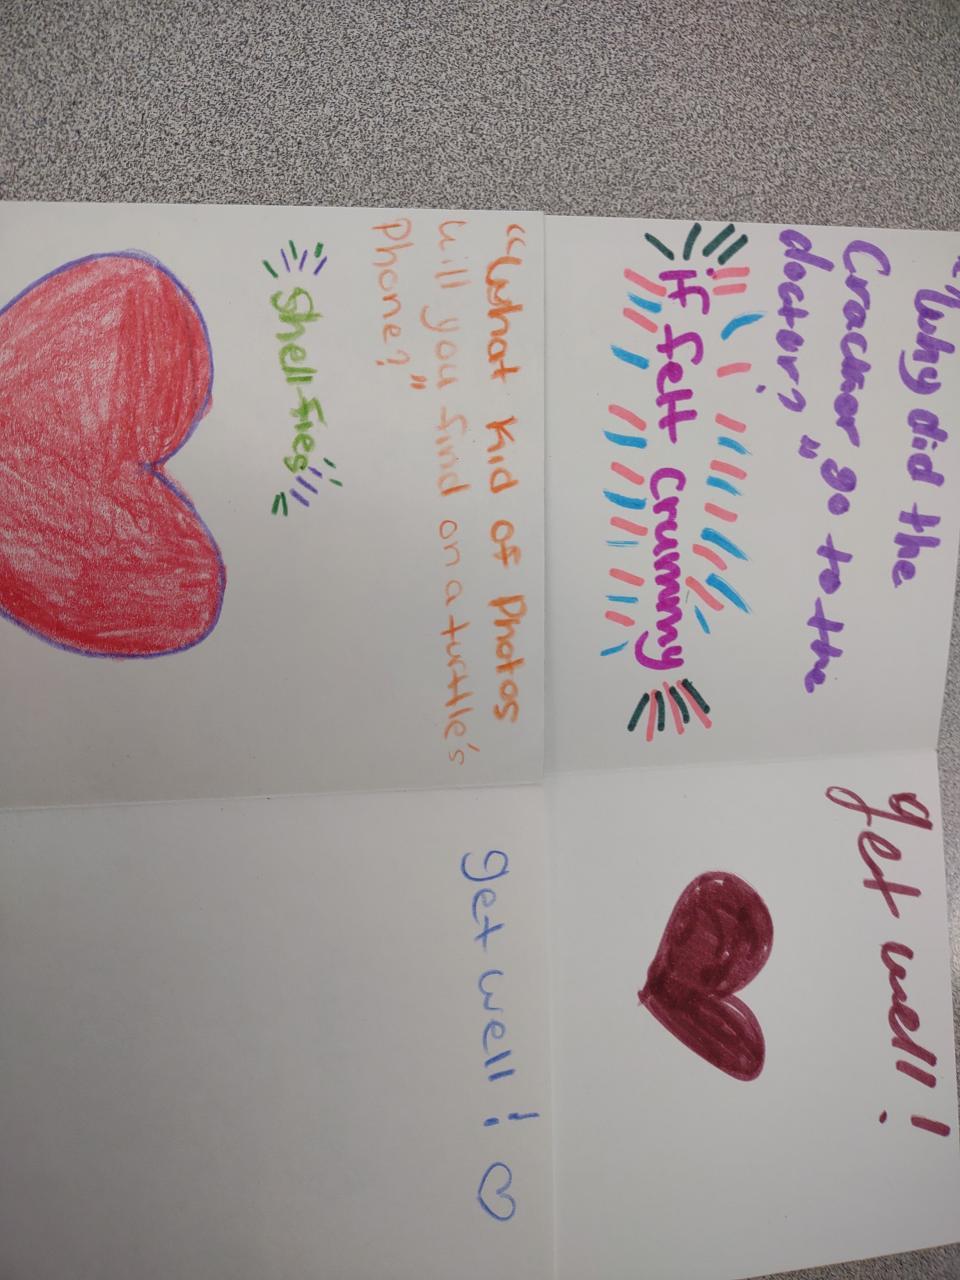 "Why did the
Cracker go to the
doctor?"
if felt Crummy
get well!
"What kid of Photos
will you find on a turtle's
Phone?"
Shell-fies
get well! ♡